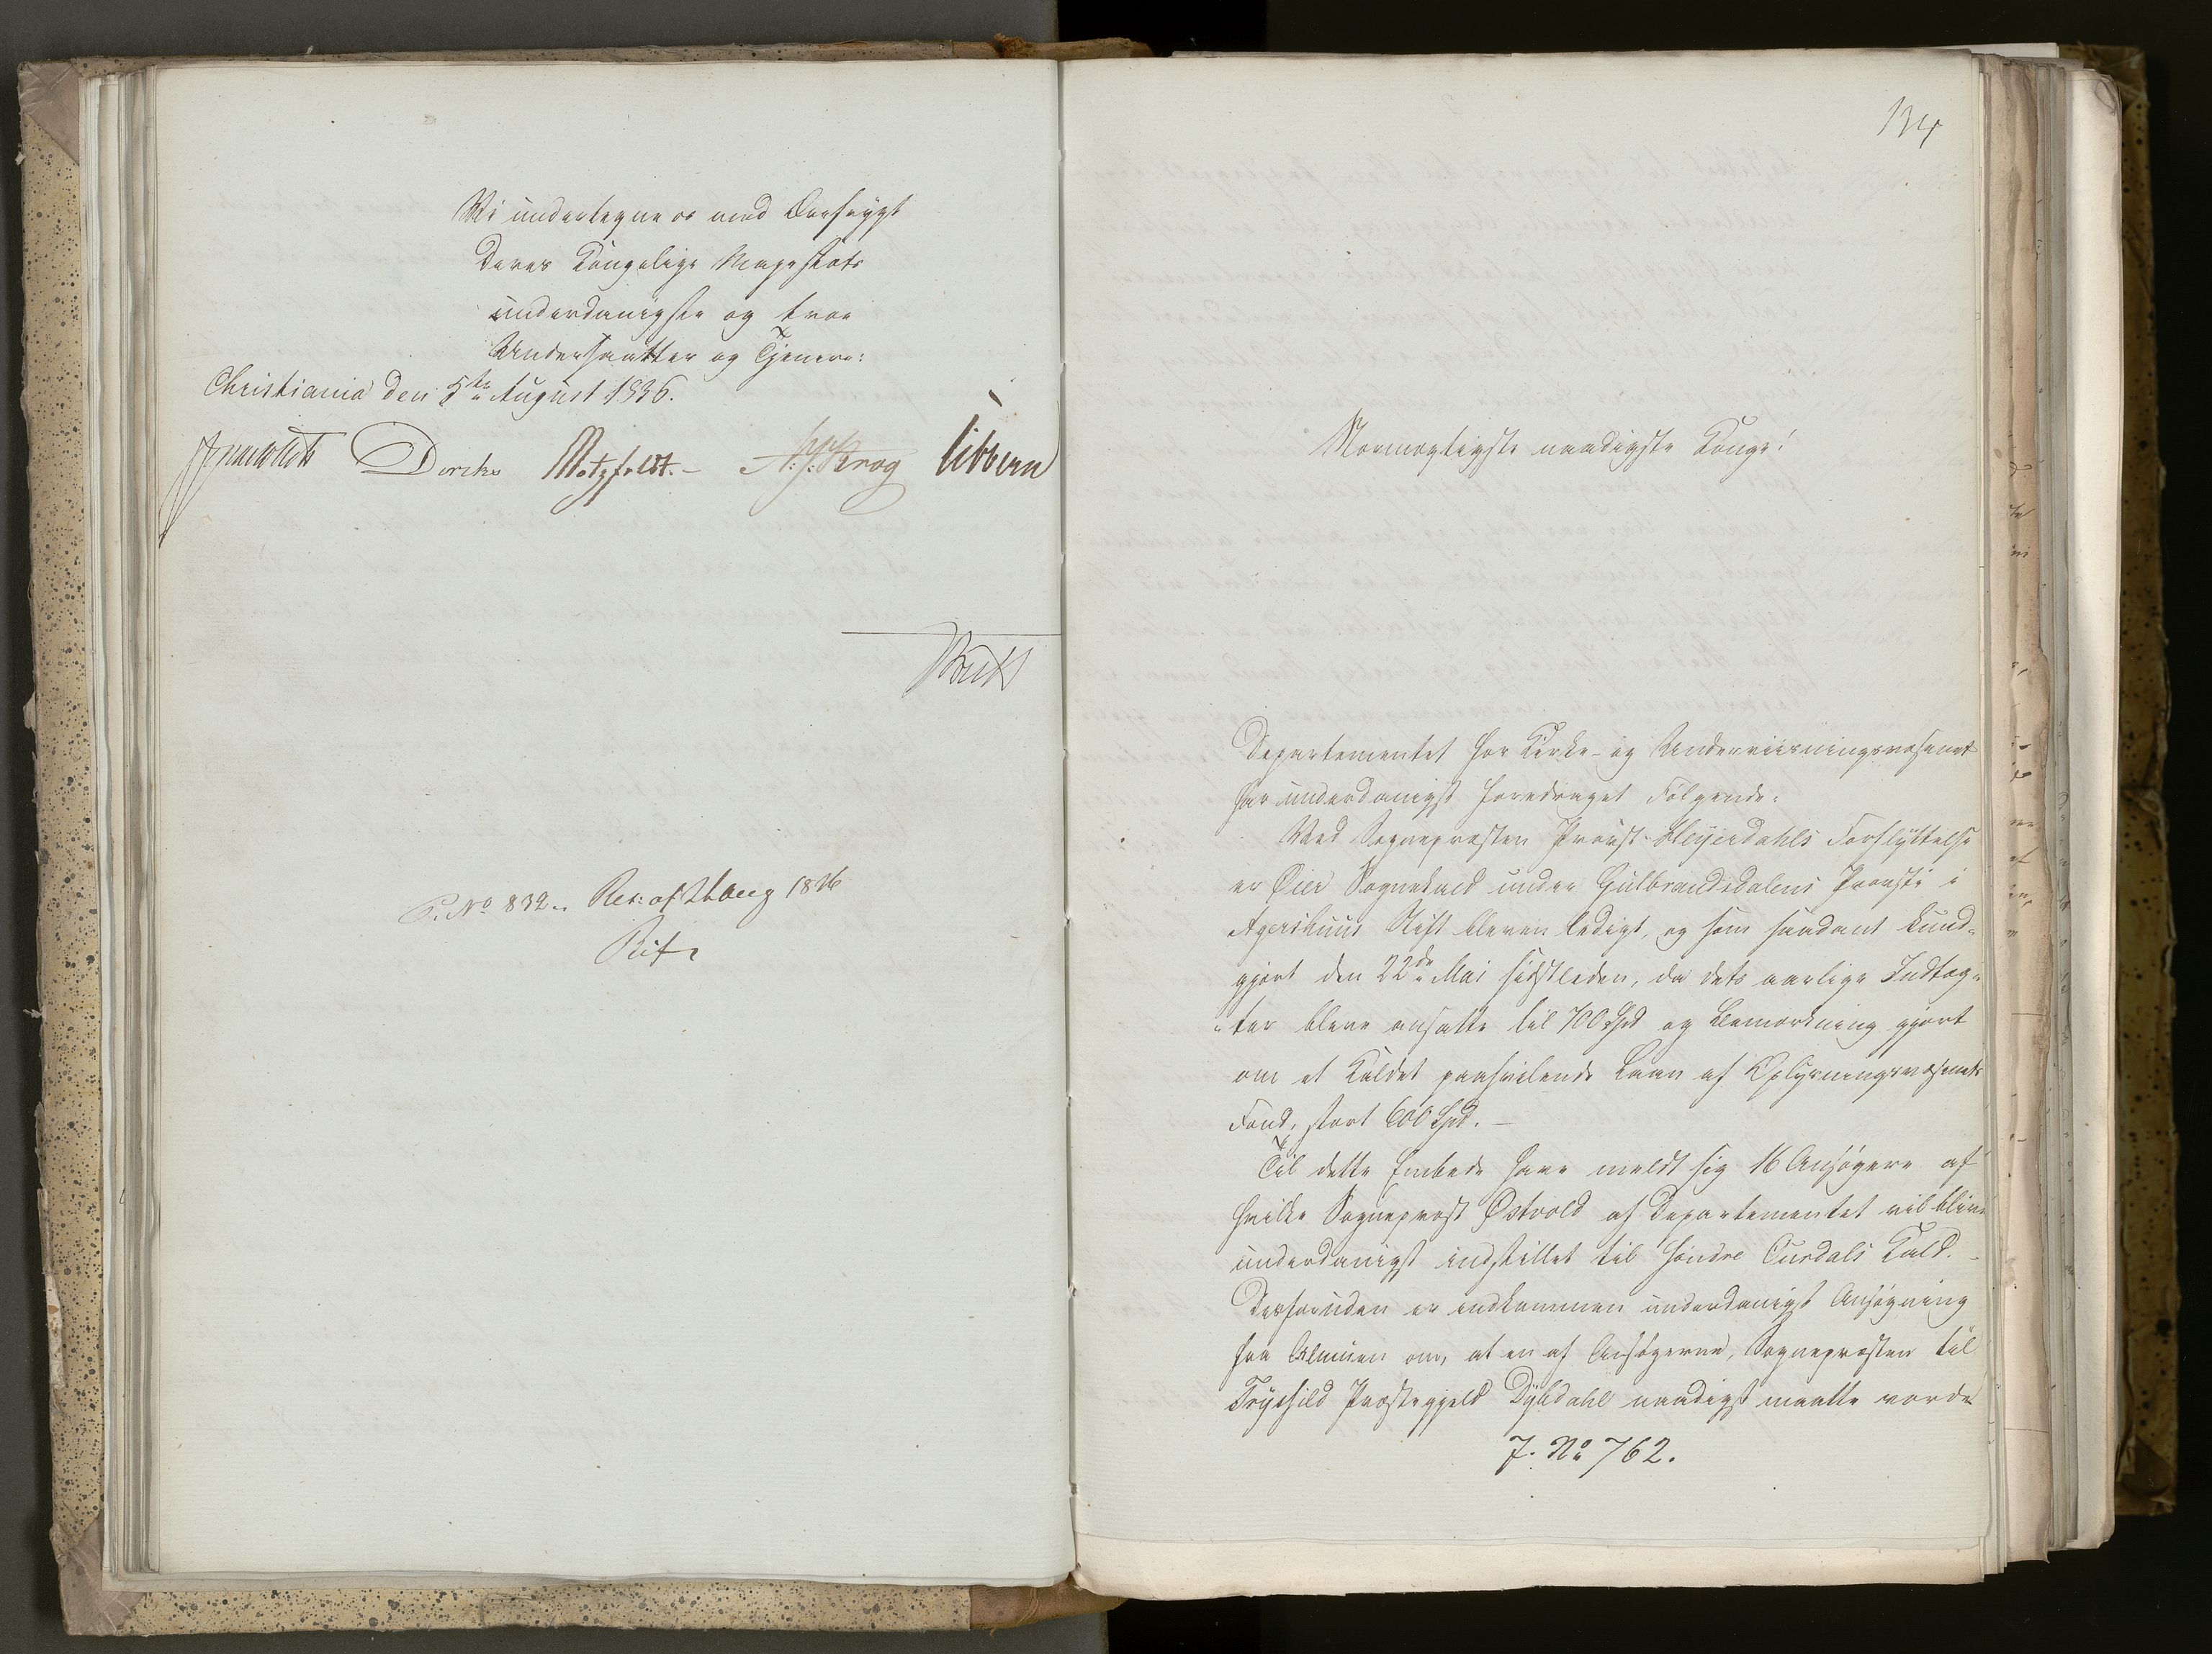 Vi undertegne os med Ærefrygt
Deres Kongelige Majestæts
underdanigste og troe
Undersaatter og Tjenere:
Christiania den 5te August 1836.
Diriks Motzfeldt.- Krog Vibe
P. No 832. Res: af 26 Aug 1836
134
Stormægtigste naadigste Konge!
Departementet for Kirke- og Underviisningsvæsenet
har underdanigst foredraget Følgende:
Ved Sognepræsten Provst Heyerdahls Forflyttelse
er Øier Sognekald under Gulbrandsdalens Provsti i
Agershuus Stift bleven ledigt, og som saadant kund-
gjort den 22de Mai sidstleden, da dets aarlige Indtæg-
-ter bleve ansatte til 700 Spd og Bemærkning gjort
om et Kaldet paahvilende Laan af Oplysningsvæsenets
Fond, stort 600 Spd. -
Til dette Embede have meldt sig 16 Ansøgere af
hvilke Sognepræst Østvold af Departementet vil blive
underdanigst indstillet til søndre Aurdals Kald. -
Desforuden er indkommen underdanigst Ansøgning
fra Almuen om, at en af Ansøgerne, Sognepræsten til
Trysild Præstegjeld Dybdahl naadigst maatte vorde
J. No 762.